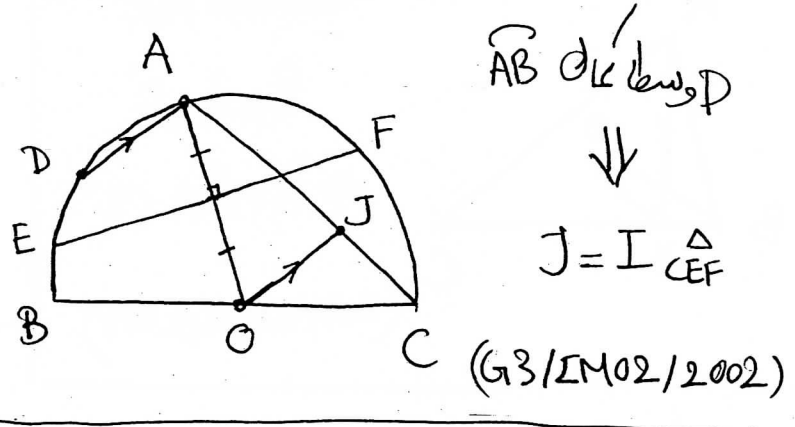 A
D
F
E
J
B
O
C
D وسط کمان AB
⇓
J = I △CEF
(G3/IMO2/2002)